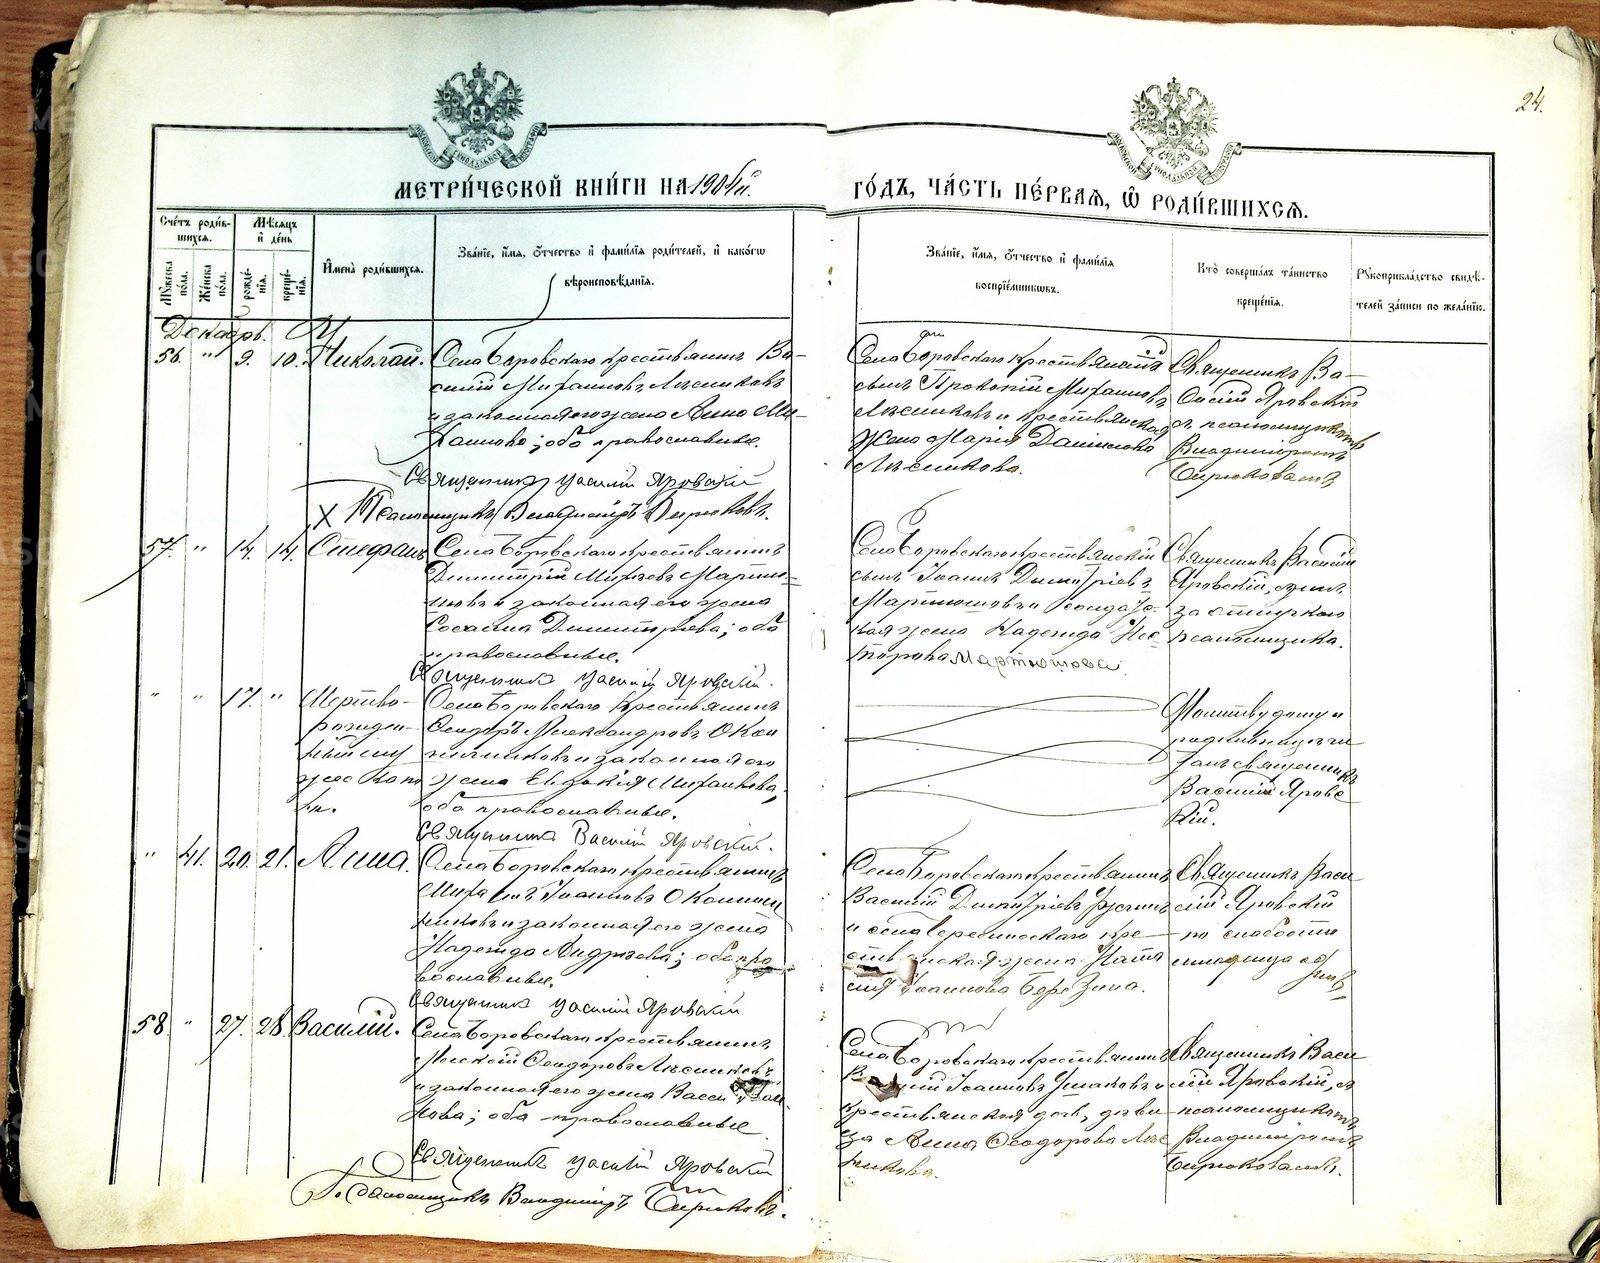 24.
МЕТРИ́ЧЕСКОЙ КНИ́ГИ НА 1904й
ГО́ДЪ, ЧА́СТЬ ПЕ́РВАѦ, Ѽ РОДИ́ВШИХСѦ.
Сче́тъ роди́в-
шихся.
Мѣ́сяцъ
и҆ де́нь
Му́жеска
по́ла.
Же́нска
по́ла.
рожде́-
нїѧ.
креще́-
нїѧ.
И҆мена̀ роди́вшихся.
Зва́нїе, и҆́мя, ѻ҆́тчество и҆ фами́лїѧ роди́телей, и҆ како́гѡ
вѣроисповѣ́данїѧ.
Зва́нїе, и҆́мя, ѻ҆́тчество и҆ фами́лїѧ
воспрїе́мникѡвъ.
Кто̀ соверша́лъ та́инство
креще́нїѧ.
Рꙋкоприкла́дство свидѣ́-
телей за́писи по жела́нїю.
Декабрь.
56. " 9. 10. Николай.
Села Боровскаго крестьянинъ Ва-
силій Михаиловъ Лѣсниковъ
и законная его жена Анна Ми-
хаилова; оба православные.
Священникъ Василій Яровскій
Псаломщикъ Владиміръ Бирюковъ.
Села Боровскаго крестьянскій
сынъ Прокопій Михаиловъ
Лѣсниковъ и крестьянская
жена Марія Даніилова
Лѣсникова.
Священникъ Ва-
силій Яровскій
съ псаломщикомъ
Владиміромъ
Бирюковымъ
57. " 14. 14. Стефанъ
Села Боровскаго крестьянинъ
Димитрій Мартю-
шовъ и законная его жена
Димитріева; оба
православные.
Священникъ Василій Яровскій.
Села Боровскаго крестьянскій
сынъ Іоаннъ Димитріевъ
Мартюшовъ и солдатс-
кая жена Надежда Нес-
торова Мартюшова
Священникъ Василій
Яровскій, одинъ
за отлучкою
псаломщика.
" " 17. " Мертво-
рожден-
ный
Села Боровскаго крестьянинъ
Ѳеодоръ Александровъ Окон
ничниковъ и законная его
жена Евдокія Михаилова,
оба православные.
Священникъ Василій Яровскій.
Молитву дому и
родильницѣ чи
талъ священникъ
Василій Яровс
кій.
" 41. 20. 21. Анна.
Села Боровскаго крестьянинъ
Михаилъ Іоанновъ Оконнич
никовъ и законная его жена
Надежда Андреева; оба пра
вославные.
Священникъ Василій Яровскій
Села Боровскаго крестьянинъ
Василій Димитріевъ
и села кре-
стьянская жена Ната
лія Іоаннова Березина.
Священникъ Васи-
лій Яровскій
по слабости
младенца одинъ
58. " 27. 28. Василій.
Села Боровскаго крестьянинъ
Алексій Ѳеодоровъ Лѣсниковъ
и законная его жена
нова; оба православные
Священникъ Василій Яровскій
Псаломщикъ Владиміръ Бирюковъ.
Села Боровскаго крестьянинъ
Василій Іоанновъ Ушаковъ и
крестьянская дочь, дѣви-
ца Анна Ѳеодорова Лѣс
никова.
Священникъ Васи
лій Яровскій, съ
псаломщикомъ
Владиміромъ
Бирюковымъ.